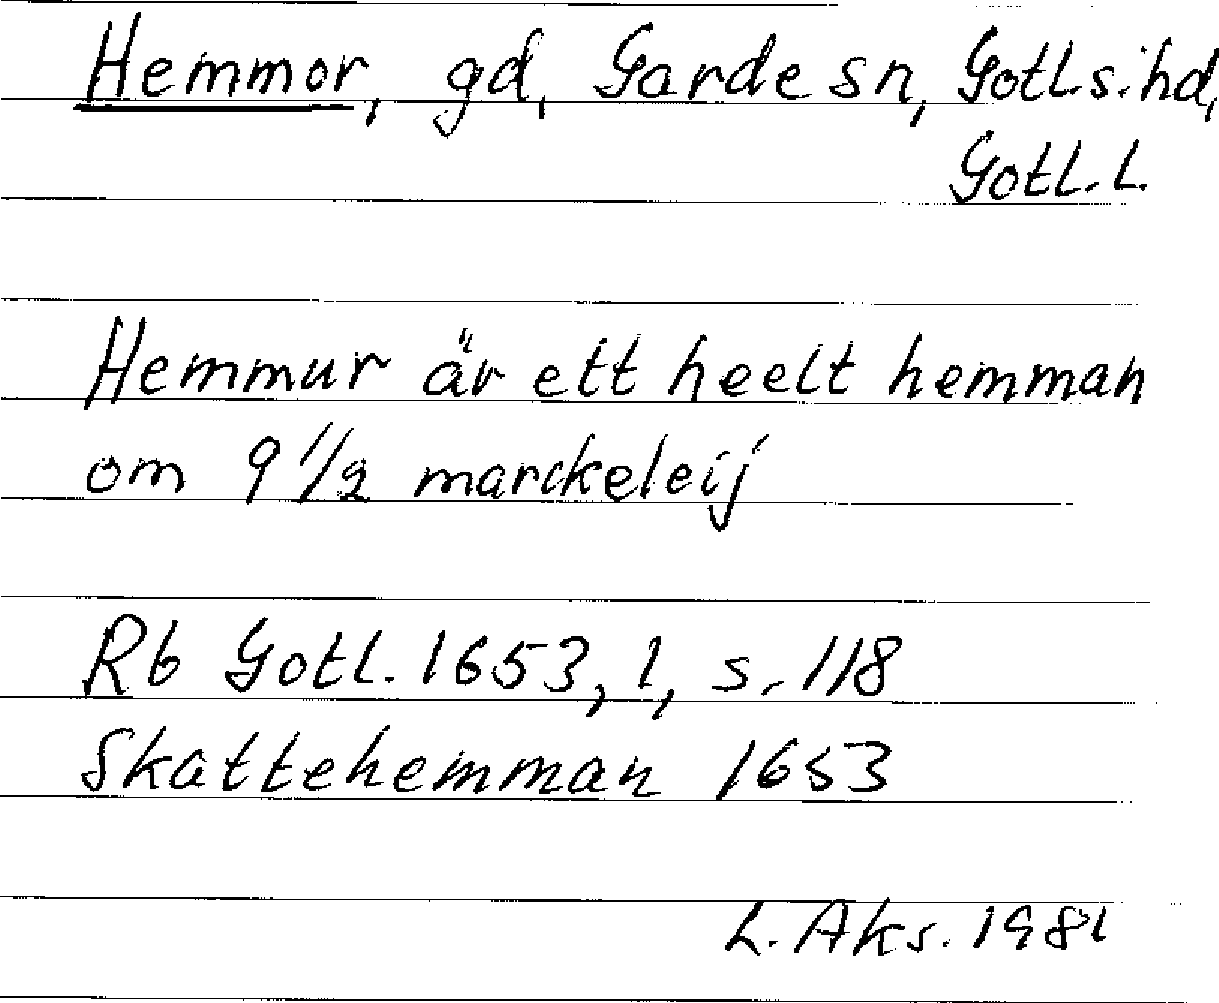 Hemmor, gd, Garde sn, Gotl.s:hd,
Gotl.l.
Hemmur är ett heelt hemman
om 9 1/2 marckeleij
Rb Gotl. 1653, 1, s. 118
Skattehemman 1653
L. Aks. 1981